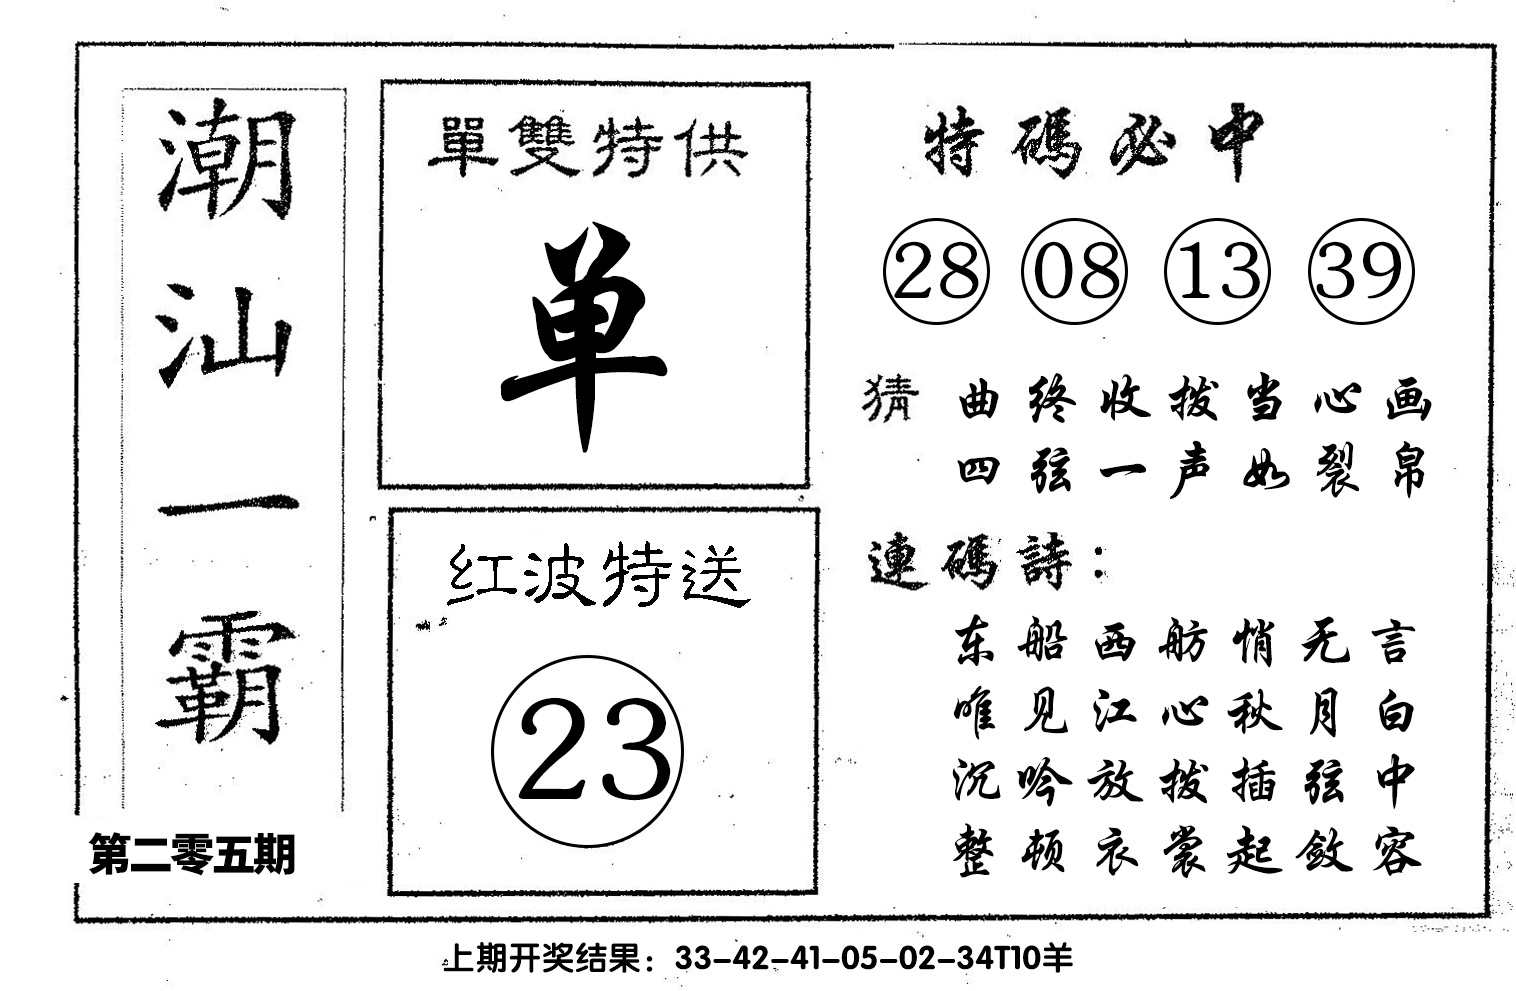 潮汕一霸
第二零五期
單雙特供
单
红波特送
23
特碼必中
28 08 13 39
猜 曲终收拨当心画
四弦一声如裂帛
連碼詩：
东船西舫悄无言
唯见江心秋月白
沉吟放拨插弦中
整顿衣裳起敛容
上期开奖结果：33-42-41-05-02-34T10羊